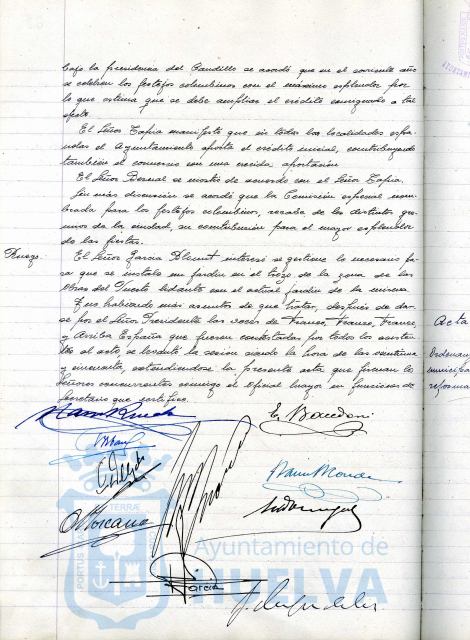 bajo la presidencia del Caudillo se acordó que en el corriente año
se celebren los festejos colombinos con el máximo esplendor por
lo que estima que se debe ampliar el crédito consignado a tal
efecto.
El Señor Tapia manifestó que en todas las localidades espa-
ñolas el Ayuntamiento aporta el crédito inicial, contribuyendo
también el comercio con una crecida aportación.
El Señor Bernal se mostró de acuerdo con el Señor Tapia.
Sin más discusión se acordó que la Comisión especial nom-
brada para los festejos colombinos, recabe de los distintos gre-
mios de la ciudad, su contribución para el mayor esplendor
de las fiestas.
Ruego. El Señor García interesó se gestione lo necesario pa-
ra que se instale un jardín en el trozo de la zona de las
Obras del Puerto lindante con el actual jardín de la misma.
Y no habiendo más asuntos de que tratar, después de dar-
se por el Señor Presidente las voces de Franco, Franco, Franco,
y Arriba España que fueron contestadas por todos los asisten-
tes al acto, se levantó la sesión siendo la hora de las veintiuna
y cincuenta, extendiéndose la presente acta que firman los
Señores concurrentes conmigo el Oficial Mayor en funciones de
Secretario que certifico.
Acta
Ordenan
municipa
reforma
García
Ayuntamiento de
HUELVA